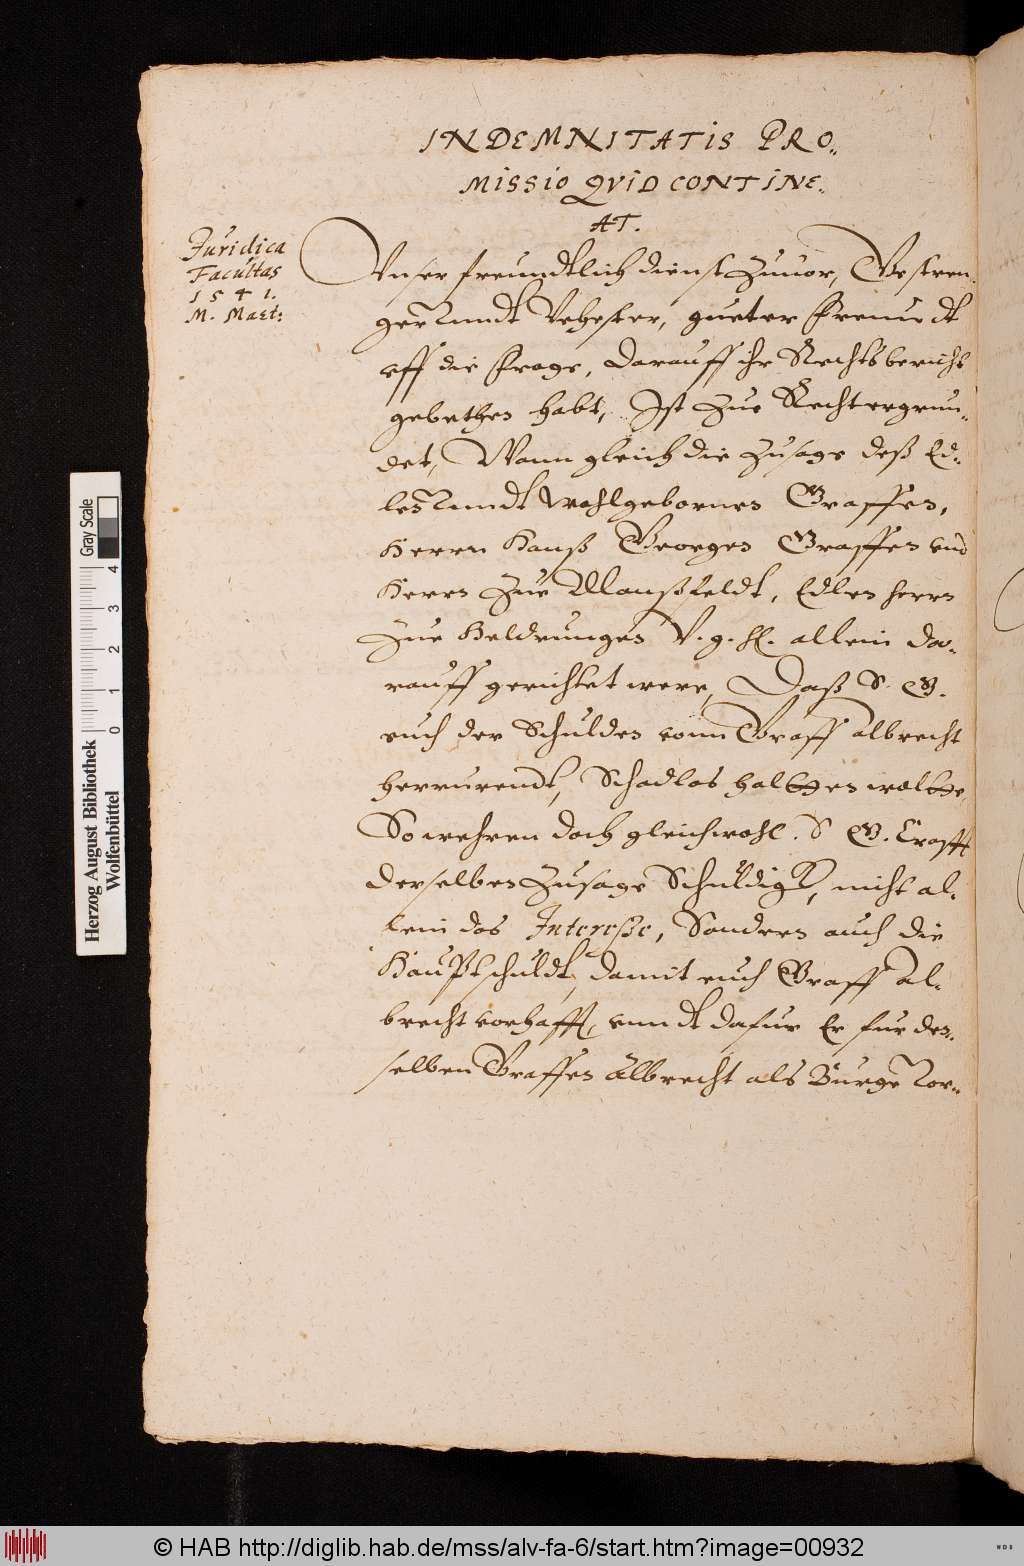 INDEMNITATIS PRO..
MISSIO QVID CONTINE.
AT.
Juridica
Facultas
1 5 4 1.
M. Mart:
Vnser freundtlich dienst zuuor, Gestren
ger vnndt Vehester, gueter Freundt
vff die Frage, darauff ihr Rechts bericht
gebethen habt, Ist zue Recht ergrun..
det, Wann gleich die zusage deß Ed..
len vnndt wohlgebornen Graffen,
Herrn Hanß Georgen Graffen vnd
Herrn zue Manßfeldt, Edlen herrn
zue Heldrungen V. g. H. allein da..
rauff gerichtet were, Daß S. G.
euch der Schulden vonn Graff Albrecht
herrurendt, Schadlos haltten woltte,
So wehren doch gleichwohl. S G. Crafft
derselben zusage Schuldigk, nicht al..
lein das Interesse, Sondern auch die
Hauptschuldt, damit euch Graff Al..
brecht vorhafft, vnndt dafur Er fur den..
selben Graffen Albrecht als Burge vor..
Herzog August Bibliothek
Wolfenbüttel
0 1 2 3 4
Gray Scale
© HAB http://diglib.hab.de/mss/alv-fa-6/start.htm?image=00932